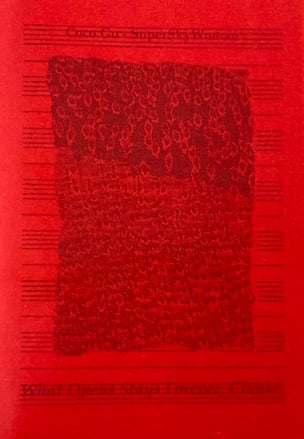 Coco Gu - SuperSkyWoman
What Opens Stays Forever, Closer